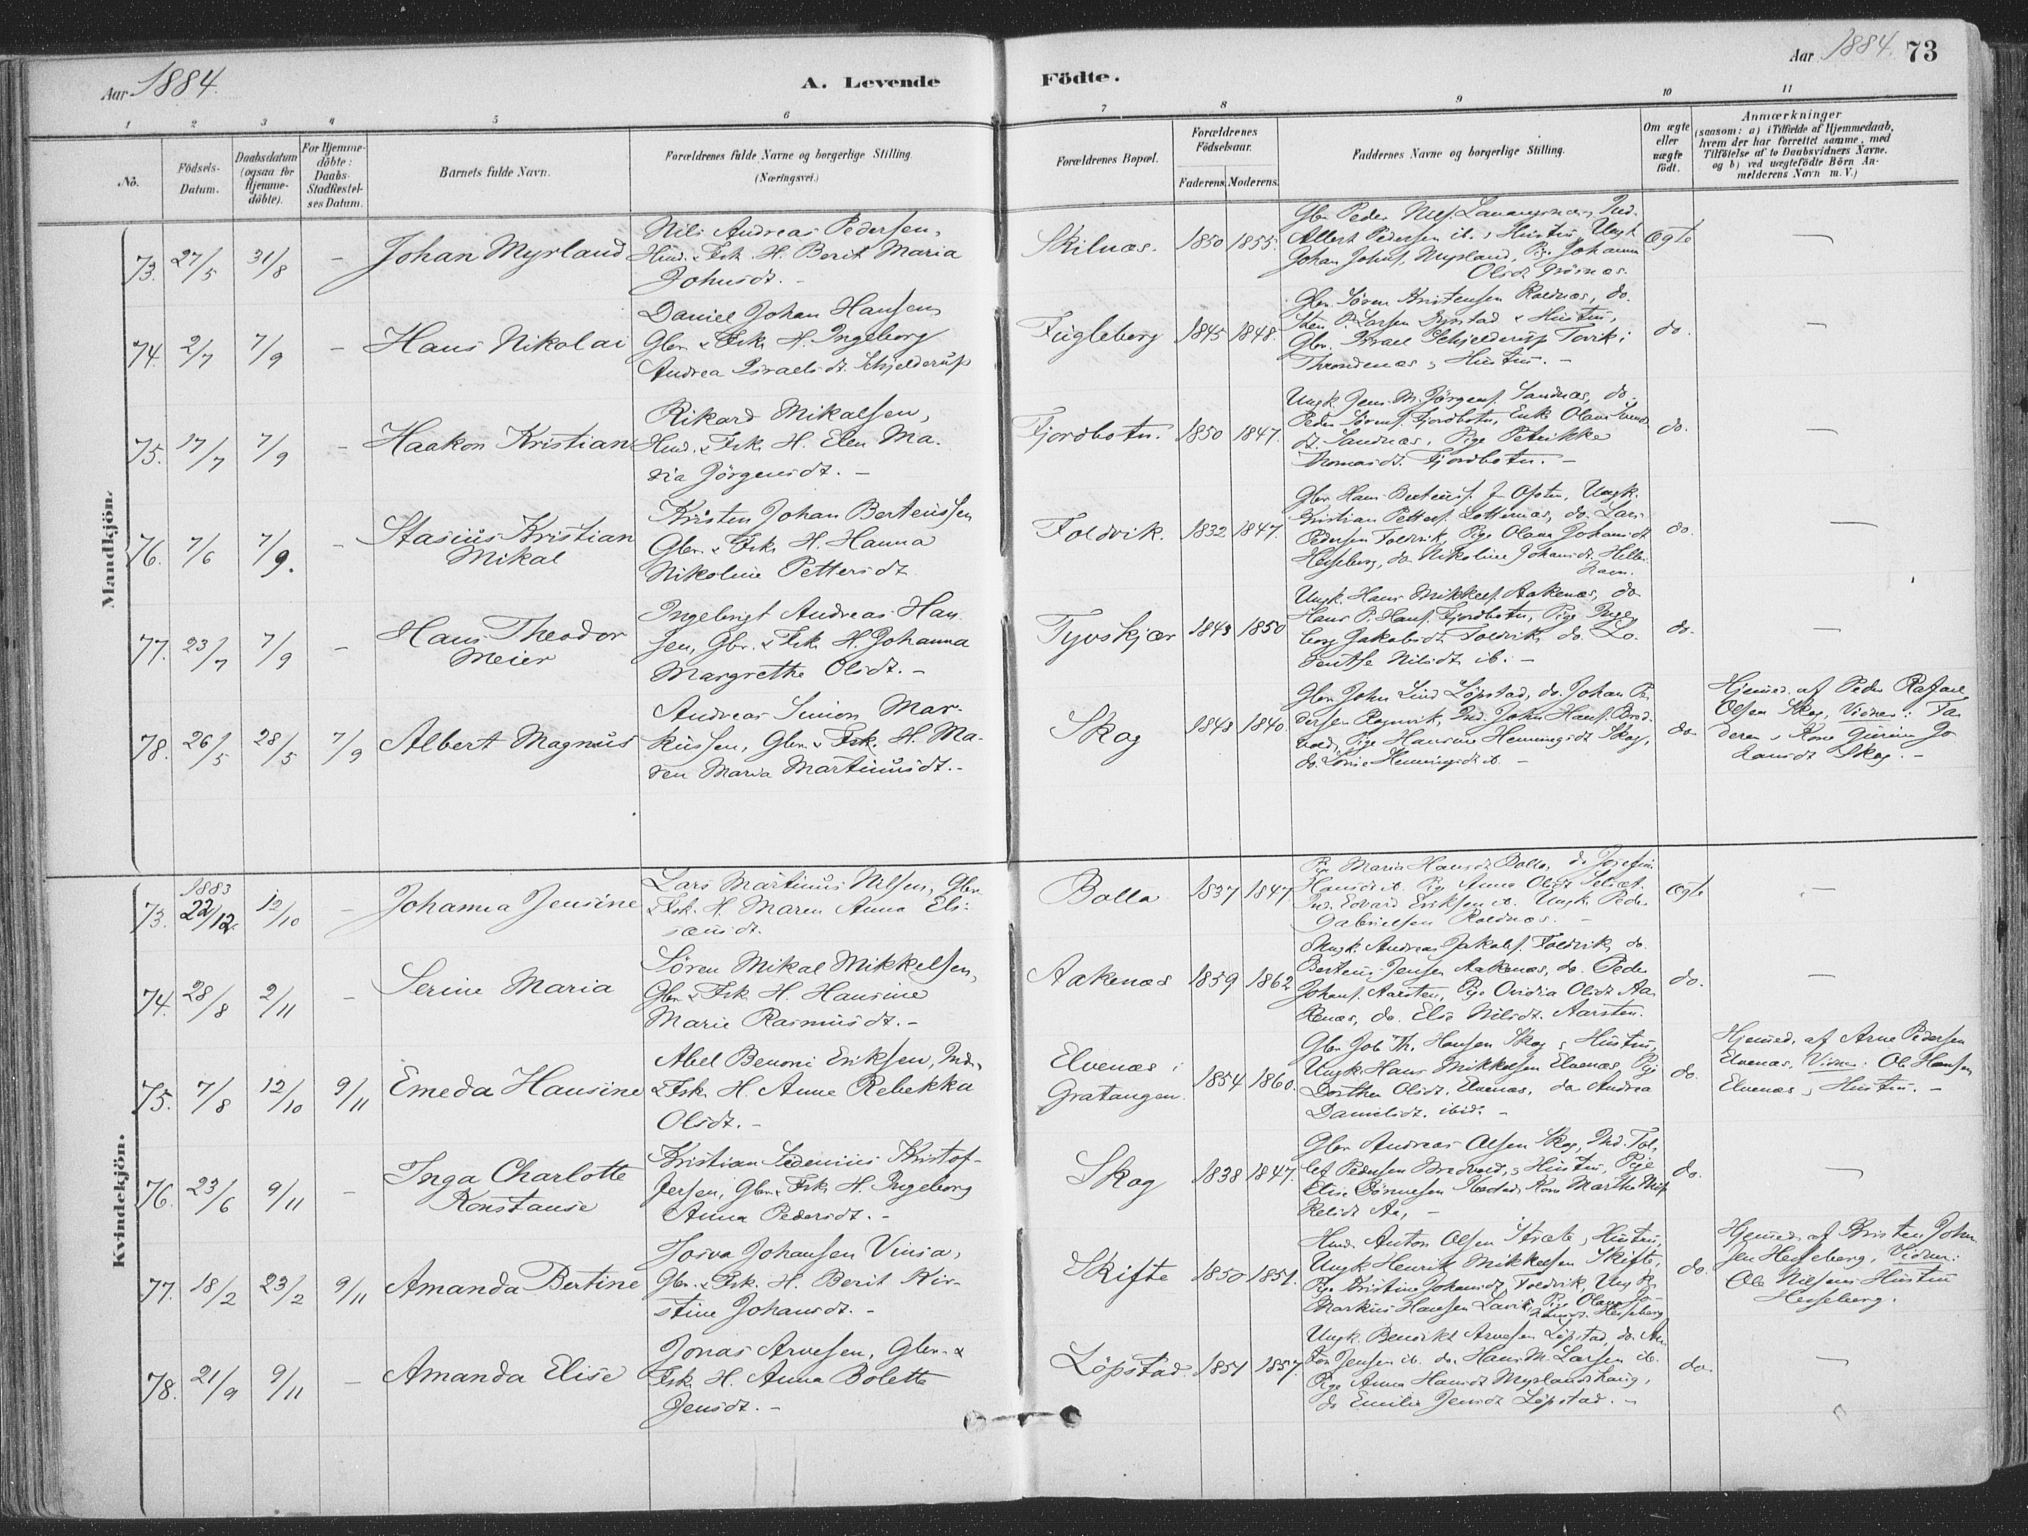 Aar 1884.
A. Levende
Födte.
Aar 1884. 73
1 2 3 4 5 6 7 8 9 10 11
No.
Födsels-
Datum.
Daabsdatum
(ogsaa for
Hjemme-
döbte).
For Hjemme-
döbte:
Daabs-
Stadfæstel-
ses Datum.
Barnets fulde Navn.
Forældrenes fulde Navne og borgerlige Stilling
(Næringsvei.)
Forældrenes Bopæl.
Forældrenes
Födselsaar.
Faderens. Moderens.
Faddernes Navne og borgerlige Stilling.
Om ægte
eller
uægte
födt.
Anmærkninger
(saasom: a) i Tilfælde af Hjemmedaab,
hvem der har forrettet samme, med
Tilföielse af to Daabsvidners Navne.
og b) ved uægtefödte Börn An-
melderens Navn m. V.)
Mandkjön.
73. 27/5 31/8 - Johan Myrland
Nils Andreas Pedersen,
Ind. & Fsk. H. Berit Maria
Johnsdt. -
Skilnæs. 1850 1855.
Albert Pedersen ib. & Hustru, Ungk.
Johan Johns. Myrland, Pige Johanna
Ægte —
74. 2/7 7/9 - Hans Nikolai
Daniel Johan Hansen
Gbr. & Fsk. H. Ingeborg
Andrea Israelsdt. Schjelderup
Fugleberg 1845 1848.
Gbr. Sören Kristensen Roldnæs, do.
Gbr. Israel Schjelderup Tovik i
Throndenæs & Hustru. -
do. —
75. 17/7 7/9 - Haakon Kristian
Rikard Mikalsen,
Ind. & Fsk. H. Elen Ma-
ria Jörgensdt. -
Fjordbotn. 1850 1847.
Ungk. Jens M. Jörgens. Sandnæs, do.
Peder Sörens. Fjordbotn, Enke
dt. Sandnæs, Pige Petrikke
Thomasdt. Fjordbotn. -
do. —
76. 7/6 7/9. - Stasius Kristian
Mikal
Kristen Johan Berteussen
Gbr. & Fsk. H. Hanna
Nikoline Pettersdt.
Foldvik. 1832 1847.
Kristian Petters. do. Lars
Pedersen Foldvik, Pige Olava Johansdt
Hesseberg, do. Nikoline Johansdt.
do. —
77. 23/7 7/9 - Hans Theodor
Meier
Ingebrigt Andreas Han-
sen, Gbr. & Fsk. H. Johanna
Margrethe Olsdt. -
Tyvskjær 1843 1850
Ungk. Hans Mikkels. Aakenæs, do
Hans P. Hans. Fjordbotn, Pige Inge-
borg Jakobsdt. Foldvik, do. Lo-
rentse Nilsdt ib. -
do. —
78. 26/5 28/5 7/9 Albert Magnus
Andreas Simon Mar-
kussen, Gbr. & Fsk. H. Ma-
ren Maria Martinusdt. -
Skog 1843 1840.
Gbr. John Lind Löpstad, do. Johan Pe-
dersen Ind. John Hans. Brod-
vold, Pige Hansine Henningsdt Skog,
do.
Hjemmed. af Peder Rafael
Olsen Skog, Vidner: Fa-
deren & Kone Jo-
hansdt Skog. -
Kvindekjön.
73. 1883 22/12. 12/10 - Johanna Jensine
Lars Martinus Nilsen, Gbr.
& Fsk. H. Maren Anna Eli-
sæusdt.
Bolla 1837 1847.
Pige Maria Hansdt Bolla, do. Josefine
Hansdt ib. Pige Anna Olsdt
Ind. Edvard Eriksen ib. Ungk. Peder
Gabrielsen Roldnæs. -
Ægte —
74. 28/8 2/11 - Serine Maria
Sören Mikal Mikkelsen,
Gbr. & Fsk. H. Hansine
Marie Rasmusdt. -
Aakenæs 1859 1862
Ungk. Andreas Jakobs. Foldvik, do.
Berteus Jensen Aakenæs, do. Peder
Johans. Aarsten, Pige Ovidia Olsdt Aa-
kenæs, do. Else Nilsdt. Aarsten.
do. —
75. 7/8 12/10 9/11 Emeda Hansine
Abel Benoni Eriksen, Ind.
& Fsk. H. Anne Rebekka
Olsdt. -
Elvenæs i
Gratangen. 1854 1860.
Gbr. Job Th. Hansen Skog & Hustru,
Ungk. Hans Mikkelsen Elvenæs, Pige
Dorthea Olsdt. Elvenæs, do Andrea
Danielsdt. ibid. -
do.
Hjemmed. af Arne Pedersen
Elvenæs, Vidner: Ole Hansen
Elvenæs & Hustru. -
76. 23/6 9/11 - Inga Charlotte
Konstanse
Kristian Sedenius Kristof-
fersen, Gbr. & Fsk. H. Ingeborg
Anna Pedersdt. -
Skog 1838 1847.
Gbr. Andreas Olsen Skog, Ind. Tol-
lef Pedersen & Hustru, Pige
Elise Kone Martha Mik-
kelsdt Aa, -
do. —
77. 18/2 23/2 9/11 Amanda Bertine
Josva Johansen Vinsa,
Gbr. & Fsk. H. Berit Kir-
stine Johansdt. -
Skifte 1850 1851.
Ind. Anton Olsen & Hustru,
Ungk. Henrik Mikkelsen Skifte,
Pige Kristine Johansdt. Foldvik, Ungk.
Markus Hansen Lavik, Pige Olava Jo-
hansdt. Hesseberg
do.
Hjemmed. af Kristen Johan-
sen Hesseberg, Vidner:
Ole Nilsen & Hustru
Hesseberg.
78. 21/9 9/11 - Amanda Elise
Jonas Arvesen, Gbr. &
Fsk. H. Anna Bolette
Jensdt. -
Löpstad. 1851 1857.
Ungk. Bendikt Arvesen Löpstad, do. An-
ton Jensen ib. do. Hans M. Larsen ib.
Pige Anna Hansdt Myrlandshaug,
do Emilie Jensdt Löpstad. -
do. —